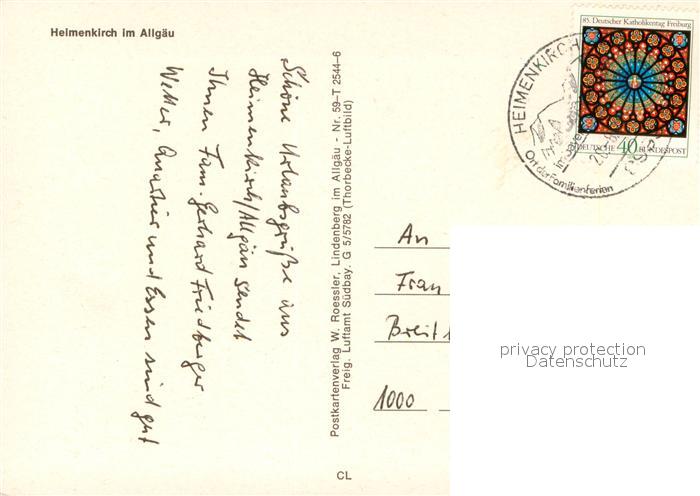 Heimenkirch im Allgäu
Schöne Urlaubsgrüße aus
Heimenkirch/Allgäu sendet
Ihnen Fam. Gerhard Friedberger
Wetter, Quartier und Essen sind gut
Postkartenverlag W. Roessler, Lindenberg im Allgäu - Nr. 59-T 2544-6
Freig. Luftamt Südbay. G 5/5782 (Thorbecke-Luftbild)
CL
85. Deutscher Katholikentag Freiburg
DEUTSCHE 40 BUNDESPOST
HEIMENKIRCH
Ort der Familienferien
An
Frau
Breit
1000
privacy protection
Datenschutz